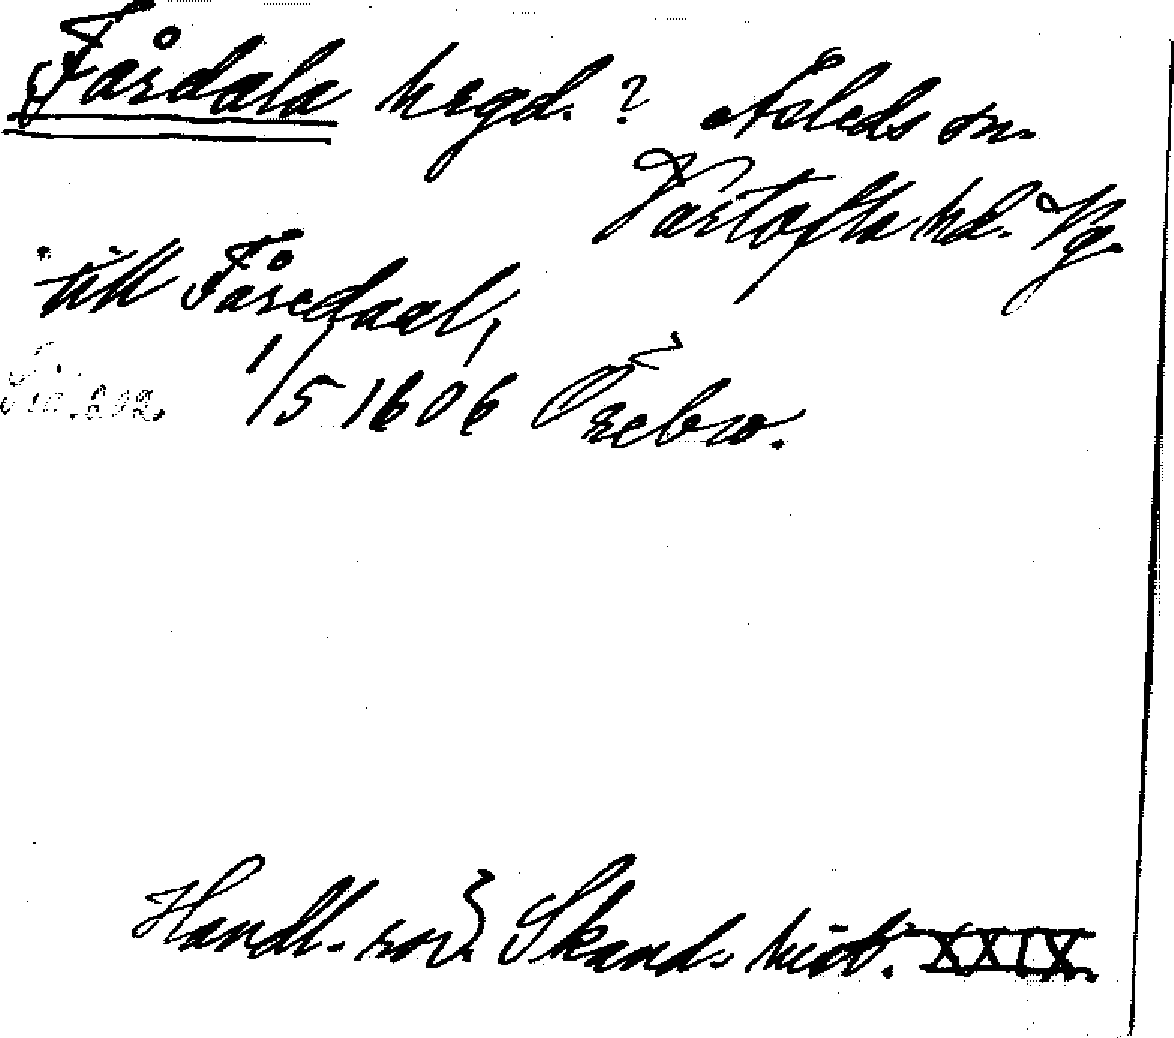 Fårdala hrgd.? Åsleds sn.
Vartofta hd. Vg.
till Fåredaal,
1/5 1606 Örebro.
Handl. rör. Skand. hist. XXIX.